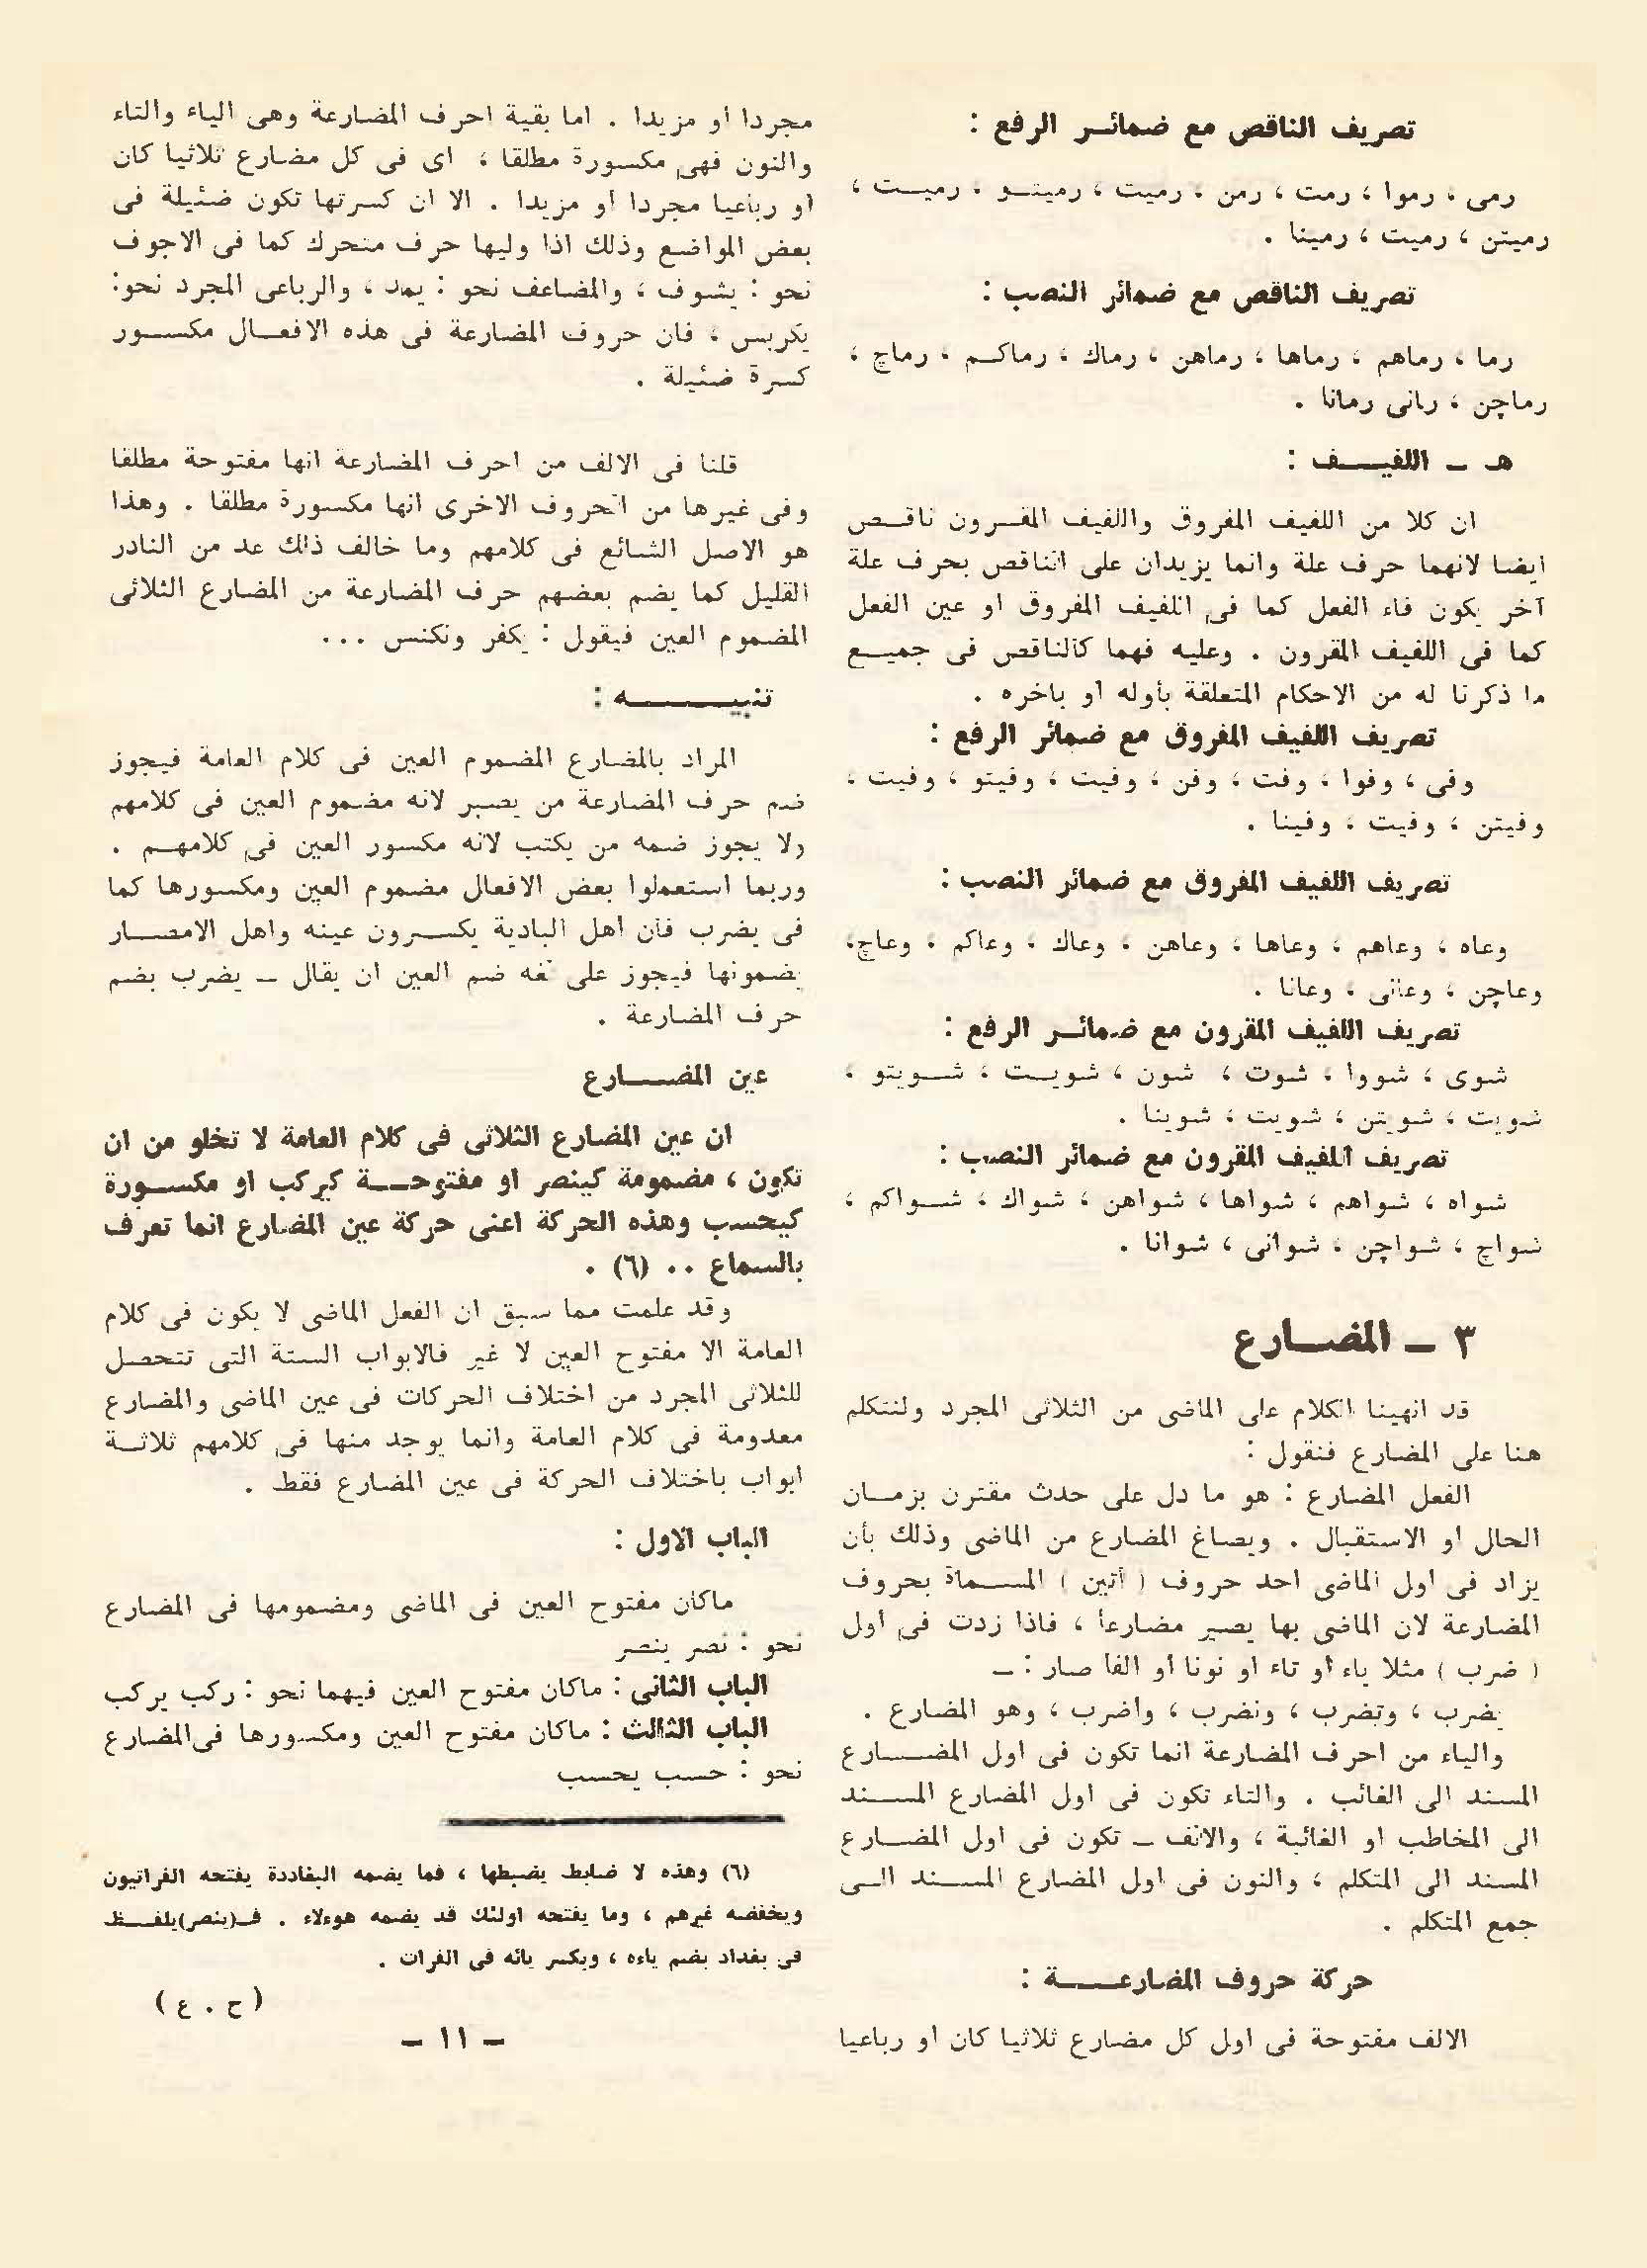 تصريف الناقص مع ضمائر الرفع :
رمى ، رموا ، رمت ، رمن ، رميت ، رميتو ، رميت ،
رميتن ، رميت ، رمينا .
تصريف الناقص مع ضمائر النصب :
رما ، رماهم ، رماها ، رماهن ، رماك ، رماكم ، رماچ ،
رماچن ، رانى رمانا .
هـ ـ اللفيف :
ان كلا من اللفيف المفروق واللفيف المقرون ناقص
ايضا لانهما حرف علة وانما يزيدان على الناقص بحرف علة
آخر يكون فاء الفعل كما فى اللفيف المفروق او عين الفعل
كما فى اللفيف المقرون . وعليه فهما كالناقص فى جميع
ما ذكرنا له من الاحكام المتعلقة بأوله او باخره .
تصريف اللفيف المفروق مع ضمائر الرفع :
وفى ، وفوا ، وفت ، وفن ، وفيت ، وفيتو ، وفيت ،
وفيتن ، وفيت ، وفينا .
تصريف اللفيف المفروق مع ضمائر النصب :
وعاه ، وعاهم ، وعاها ، وعاهن ، وعاك ، وعاكم ، وعاچ،
وعاچن ، وعانى ، وعانا .
تصريف اللفيف المقرون مع ضمائر الرفع :
شوى ، شووا ، شوت ، شون ، شويت ، شويتو ،
شويت ، شويتن ، شويت ، شوينا .
تصريف اللفيف المقرون مع ضمائر النصب :
شواه ، شواهم ، شواها ، شواهن ، شواك ، شواكم ،
شواچ ، شواچن ، شوانى ، شوانا .
٣ ـ المضارع
قد انهينا الكلام على الماضى من الثلاثى المجرد ولنتكلم
هنا على المضارع فنقول :
الفعل المضارع : هو ما دل على حدث مقترن بزمان
الحال او الاستقبال . ويصاغ المضارع من الماضى وذلك بأن
يزاد فى اول الماضى احد حروف ( أتين ) المسماة بحروف
المضارعة لان الماضى بها يصير مضارعا ، فاذا زدت فى اول
( ضرب ) مثلا ياء او تاء او نونا او الفا صار : ـ
يضرب ، وتضرب ، ونضرب ، واضرب ، وهو المضارع .
والياء من احرف المضارعة انما تكون فى اول المضارع
المسند الى الغائب . والتاء تكون فى اول المضارع المسند
الى المخاطب او الغائبة ، والالف ـ تكون فى اول المضارع
المسند الى المتكلم ، والنون فى اول المضارع المسند الى
جمع المتكلم .
حركة حروف المضارعة :
الالف مفتوحة فى اول كل مضارع ثلاثيا كان او رباعيا
مجردا او مزيدا . اما بقية احرف المضارعة وهى الياء والتاء
والنون فهى مكسورة مطلقا ، اى فى كل مضارع ثلاثيا كان
او رباعيا مجردا او مزيدا . الا ان كسرتها تكون ضئيلة فى
بعض المواضع وذلك اذا وليها حرف متحرك كما فى الاجوف
نحو : يشوف ، والمضاعف نحو : يمد ، والرباعى المجرد نحو:
يكربس ، فان حروف المضارعة فى هذه الافعال مكسور
كسرة ضئيلة .
قلنا فى الالف من احرف المضارعة انها مفتوحة مطلقا
وفى غيرها من الحروف الاخرى انها مكسورة مطلقا . وهذا
هو الاصل الشائع فى كلامهم وما خالف ذلك عد من النادر
القليل كما يضم بعضهم حرف المضارعة من المضارع الثلاثى
المضموم العين فيقول : يكفر ونكنس ...
تنبيه :
المراد بالمضارع المضموم العين فى كلام العامة فيجوز
ضم حرف المضارعة من يصبر لانه مضموم العين فى كلامهم
ولا يجوز ضمه من يكتب لانه مكسور العين فى كلامهم .
وربما استعملوا بعض الافعال مضموم العين ومكسورها كما
فى يضرب فان اهل البادية يكسرون عينه واهل الامصار
يضمونها فيجوز على لغه ضم العين ان يقال ـ يضرب بضم
حرف المضارعة .
عين المضارع
ان عين المضارع الثلاثى فى كلام العامة لا تخلو من ان
تكون ، مضمومة كينصر او مفتوحة كيركب او مكسورة
كيحسب وهذه الحركة اعنى حركة عين المضارع انما تعرف
بالسماع .. (٦) .
وقد علمت مما سبق ان الفعل الماضى لا يكون فى كلام
العامة الا مفتوح العين لا غير فالابواب الستة التى تتحصل
للثلاثى المجرد من اختلاف الحركات فى عين الماضى والمضارع
معدومة فى كلام العامة وانما يوجد منها فى كلامهم ثلاثة
ابواب باختلاف الحركة فى عين المضارع فقط .
الباب الاول :
ماكان مفتوح العين فى الماضى ومضمومها فى المضارع
نحو : نصر ينصر
الباب الثانى : ماكان مفتوح العين فيهما نحو : ركب يركب
الباب الثالث : ماكان مفتوح العين ومكسورها فى المضارع
نحو : حسب يحسب
(٦) وهذه لا ضابط يضبطها ، فما يضمه البغاددة يفتحه الفراتيون
ويخفضه غيرهم ، وما يفتحه اولئك قد يضمه هوءلاء . فـ(ينصر)يلفظ
فى بغداد بضم ياءه ، وبكسر يائه فى الفرات .
( ح . ع )
ـ ١١ ـ